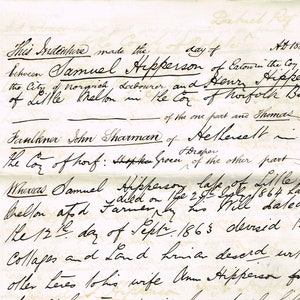 This Indenture made the day of AD 18
between Samuel Hipperson of Catton in the Coy of
the City of Norwich Labourer, and Henry Hipper
of Little Melton in the Coy of Norfolk
of the one part and Thomas
Faulkner John Sharman of Hethersett in
the Coy of Norf: Grocer & Draper of the other part
Whereas Samuel Hipperson late of Little
Melton afsd Farmer died on the 1864 by his Will dated
the 12th day of Septr 1863 devised
Cottages and Land herein descrd
other heres to his wife Ann Hipperson for